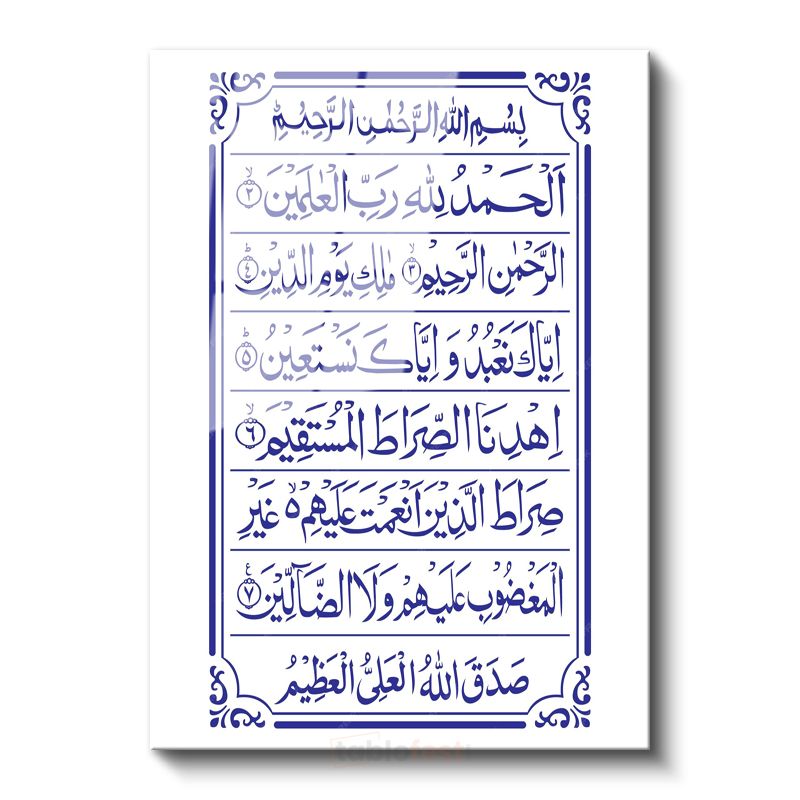 بِسْمِ اللهِ الرَّحْمٰنِ الرَّحِيْمِ
اَلْحَمْدُ لِلّٰهِ رَبِّ الْعٰلَمِيْنَ ۙ﴿٢﴾
الرَّحْمٰنِ الرَّحِيْمِ ۙ﴿٣﴾ مٰلِكِ يَوْمِ الدِّيْنِ ؕ﴿٤﴾
اِيَّاكَ نَعْبُدُ وَ اِيَّاكَ نَسْتَعِيْنُ ؕ﴿٥﴾
اِهْدِنَا الصِّرَاطَ الْمُسْتَقِيْمَ ۙ﴿٦﴾
صِرَاطَ الَّذِيْنَ اَنْعَمْتَ عَلَيْهِمْ ۙ۬ غَيْرِ
الْمَغْضُوْبِ عَلَيْهِمْ وَلَا الضَّآلِّيْنَ ࣖ﴿٧﴾
صَدَقَ اللهُ الْعَلِيُّ الْعَظِيْمُ
tablofest